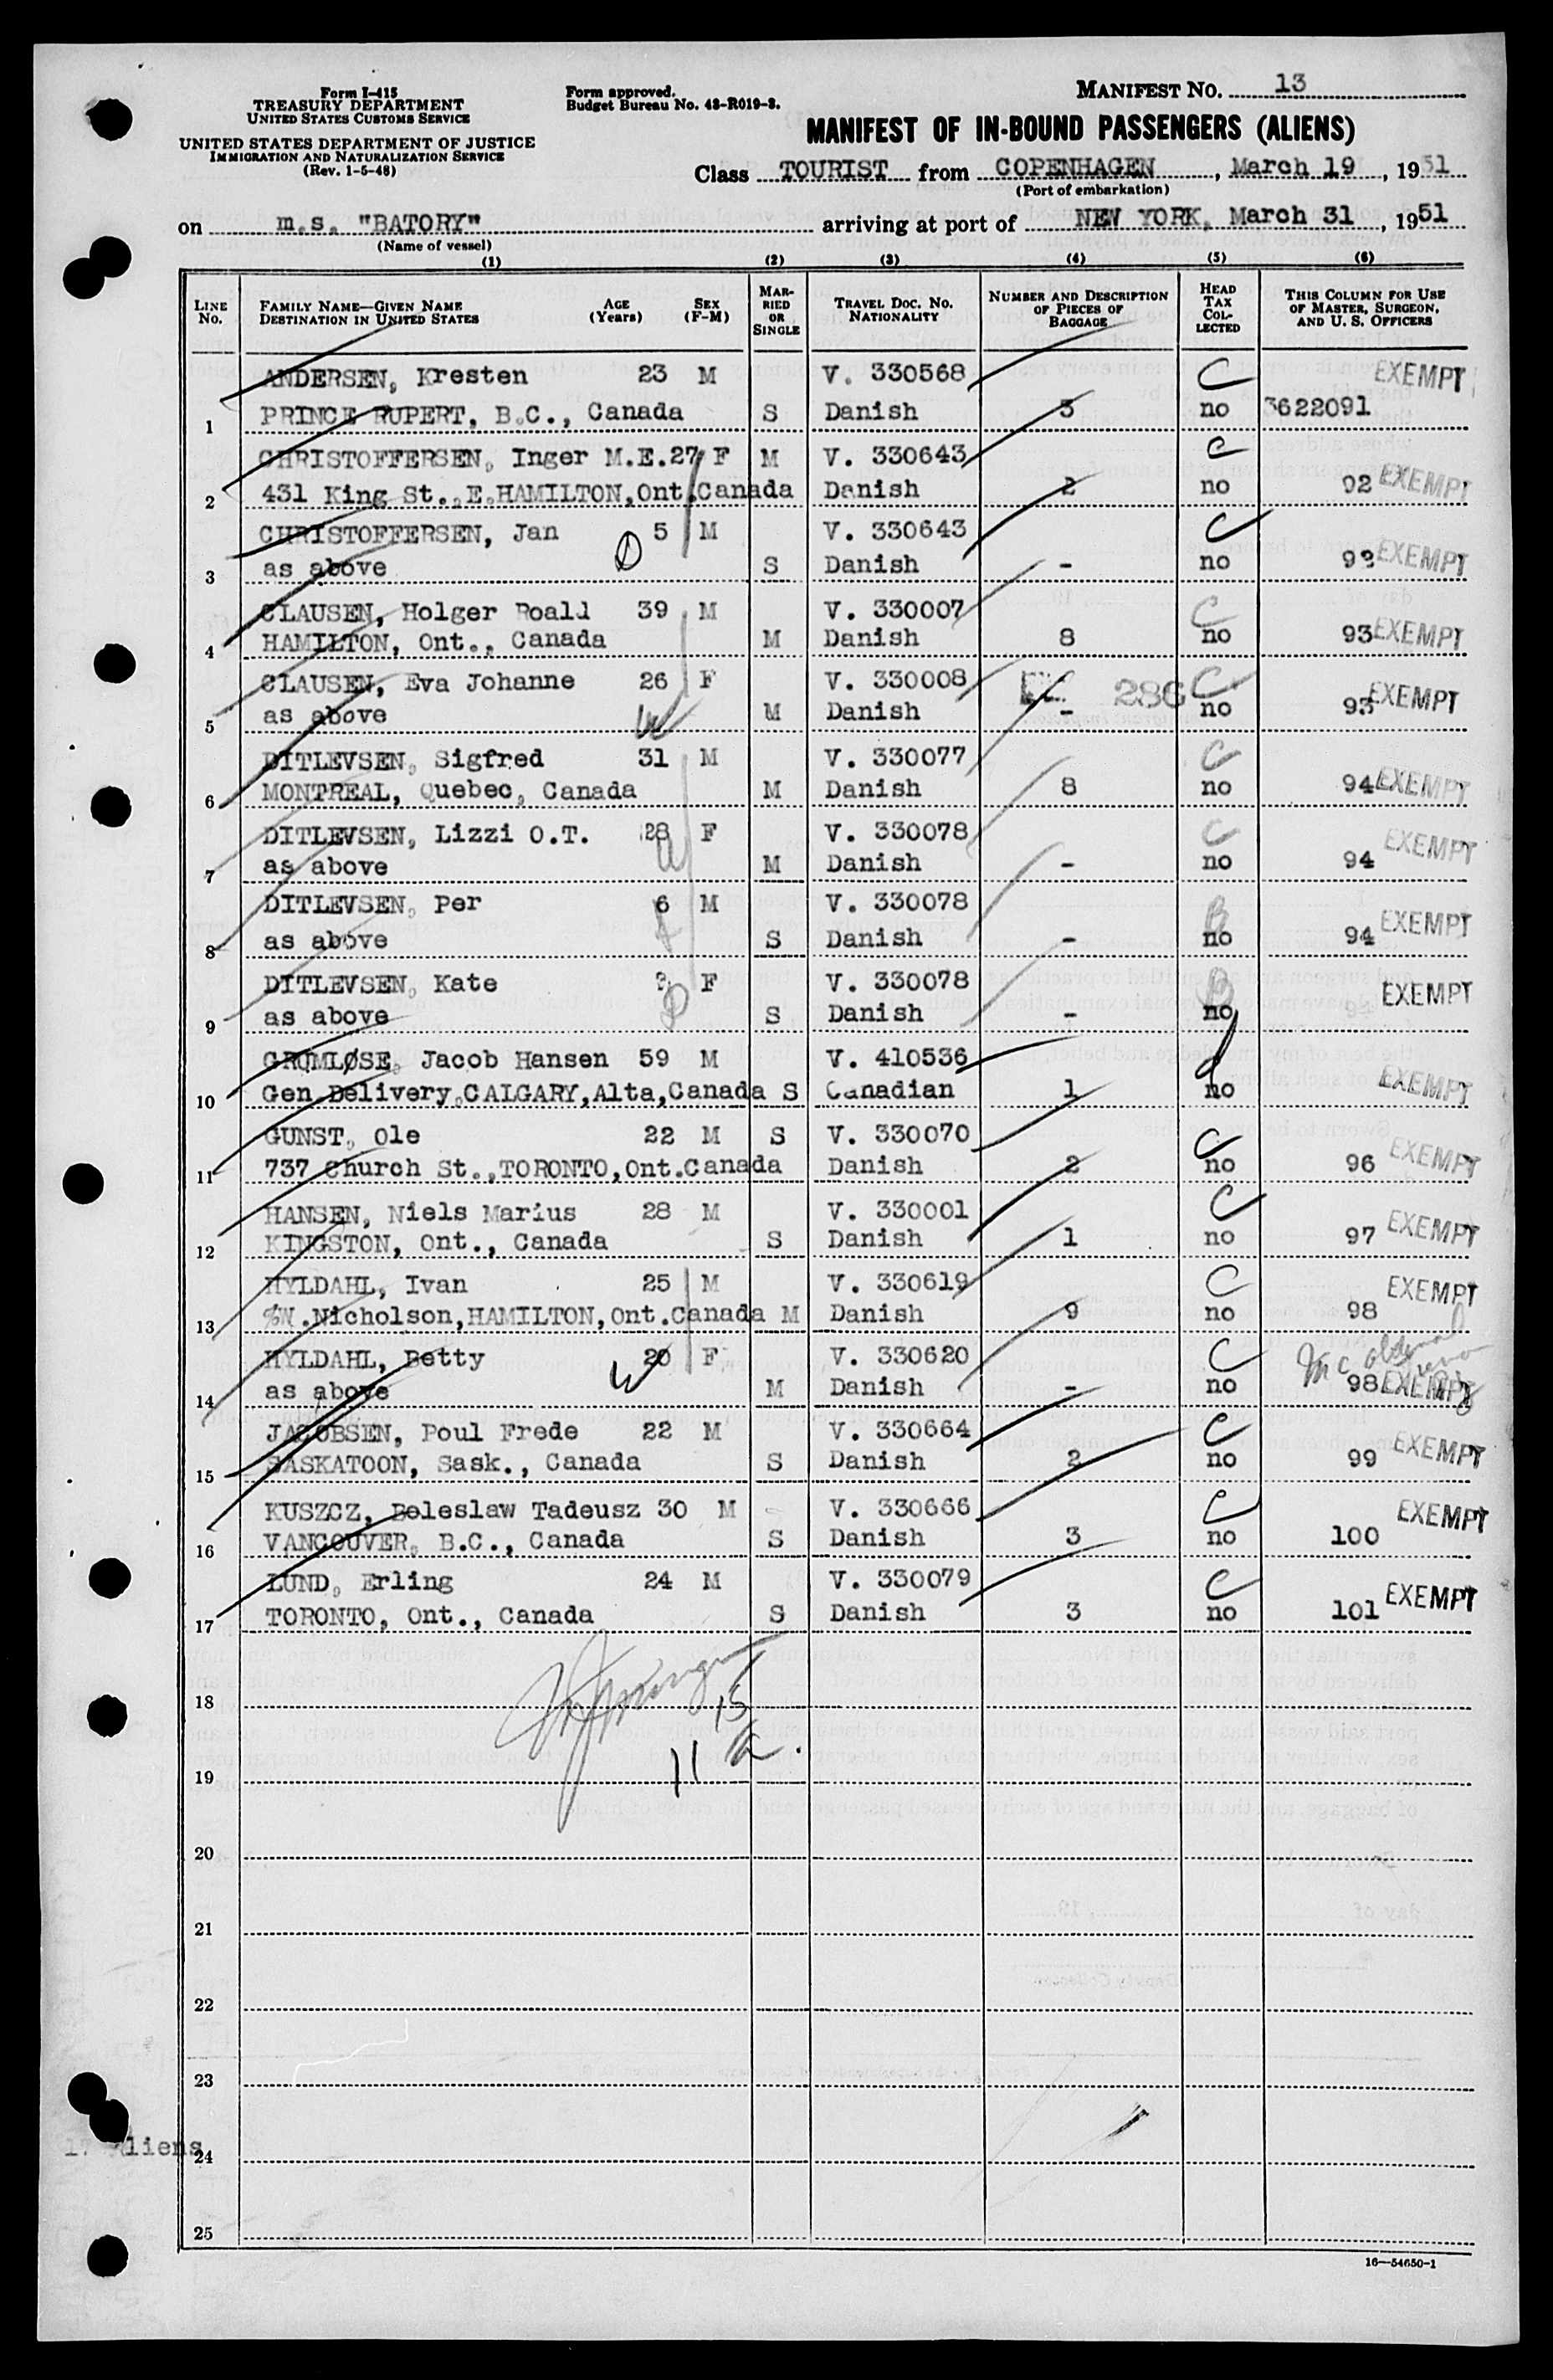 Form I-415
TREASURY DEPARTMENT
UNITED STATES CUSTOMS SERVICE
UNITED STATES DEPARTMENT OF JUSTICE
IMMIGRATION AND NATURALIZATION SERVICE
(Rev. 1-5-48)
Form approved.
Budget Bureau No. 43-R019-3.
MANIFEST NO. 13
MANIFEST OF IN-BOUND PASSENGERS (ALIENS)
Class TOURIST from COPENHAGEN, March 19, 1951
(Port of embarkation)
on m.s. "BATORY" arriving at port of NEW YORK, March 31, 1951
(Name of vessel)
(1) (2) (3) (4) (5) (6)
LINE No. FAMILY NAME—GIVEN NAME DESTINATION IN UNITED STATES AGE (Years) SEX (F-M) MARRIED OR SINGLE TRAVEL DOC. NO. NATIONALITY NUMBER AND DESCRIPTION OF PIECES OF BAGGAGE HEAD TAX COLLECTED THIS COLUMN FOR USE OF MASTER, SURGEON, AND U. S. OFFICERS
ANDERSEN, Kresten 23 M V. 330568 C EXEMPT
1 PRINCE RUPERT, B.C., Canada S Danish 3 no 3622091
CHRISTOFFERSEN, Inger M.E. 27 F M V. 330643 C
2 431 King St., E.HAMILTON,Ont.Canada Danish 2 no 92 EXEMPT
CHRISTOFFERSEN, Jan 5 M V. 330643 C
3 as above S Danish - no 92 EXEMPT
CLAUSEN, Holger Roald 39 M V. 330007 C
4 HAMILTON, Ont., Canada M Danish 8 no 93 EXEMPT
CLAUSEN, Eva Johanne 26 F V. 330008 286 C
5 as above M Danish - no 93 EXEMPT
DITLEVSEN, Sigfred 31 M V. 330077 C
6 MONTREAL, Quebec, Canada M Danish 8 no 94 EXEMPT
DITLEVSEN, Lizzi O.T. 28 F V. 330078 C EXEMPT
7 as above M Danish - no 94
DITLEVSEN, Per 6 M V. 330078 B
8 as above S Danish - no 94 EXEMPT
DITLEVSEN, Kate F V. 330078 B EXEMPT
9 as above S Danish - no 94
GROMLØSE, Jacob Hansen 59 M V. 410536
10 Gen.Delivery,CALGARY,Alta,Canada S Canadian 1 no EXEMPT
GUNST, Ole 22 M S V. 330070 C
11 737 Church St.,TORONTO,Ont.Canada Danish 2 no 96 EXEMPT
HANSEN, Niels Marius 28 M V. 330001 C
12 KINGSTON, Ont., Canada S Danish 1 no 97 EXEMPT
HYLDAHL, Ivan 25 M V. 330619 C EXEMPT
13 %W.Nicholson,HAMILTON,Ont.Canada M Danish 9 no 98
HYLDAHL, Betty 20 F V. 330620 C
14 as above M Danish - no 98 EXEMPT
JACOBSEN, Poul Frede 22 M V. 330664 C
15 SASKATOON, Sask., Canada S Danish 2 no 99 EXEMPT
KUSZCZ, Boleslaw Tadeusz 30 M V. 330666 C EXEMPT
16 VANCOUVER, B.C., Canada S Danish 3 no 100
LUND, Erling 24 M V. 330079 C EXEMPT
17 TORONTO, Ont., Canada S Danish 3 no 101
18
15
19 11 a.
20
21
22
23
24
25
16—54650-1